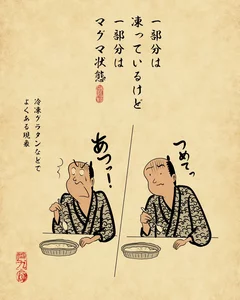 一部分は
凍っているけど
一部分は
マグマ状態
つめてっ
あつっー!
冷凍グラタンなどで
よくある現象